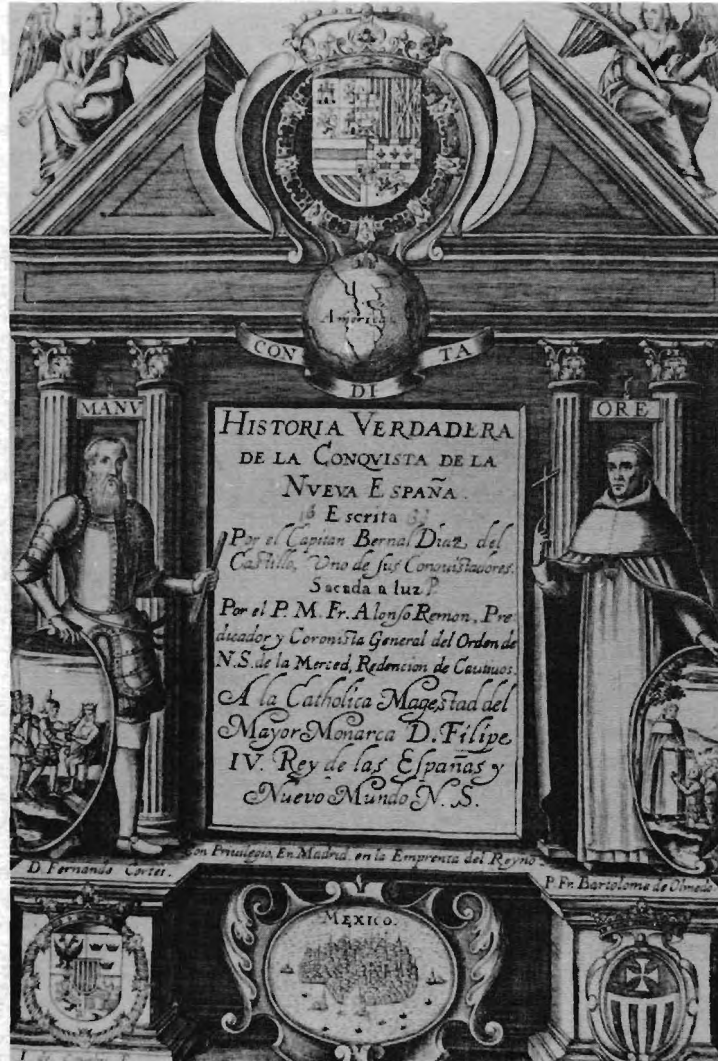 America
CON DI TA
MANV
ORE
HISTORIA VERDADERA
DE LA CONQVISTA DE LA
NVEVA ESPAÑA.
Escrita
Por el Capitan Bernal Diaz, del
Castillo, Vno de sus Conquistadores.
Sacada a luz
Por el P. M. Fr. Alonso Remon, Pre-
dicador y Coronista General del Orden de
N. S. de la Merced, Redencion de Cautiuos.
A la Catholica Magestad del
Mayor Monarca D. Filipe
IV. Rey de las Españas y
Nuevo Mundo N. S.
Con Priuilegio, En Madrid, en la Emprenta del Reyno
D. Fernando Cortes.
P. Fr. Bartolome de Olmedo
MEXICO.